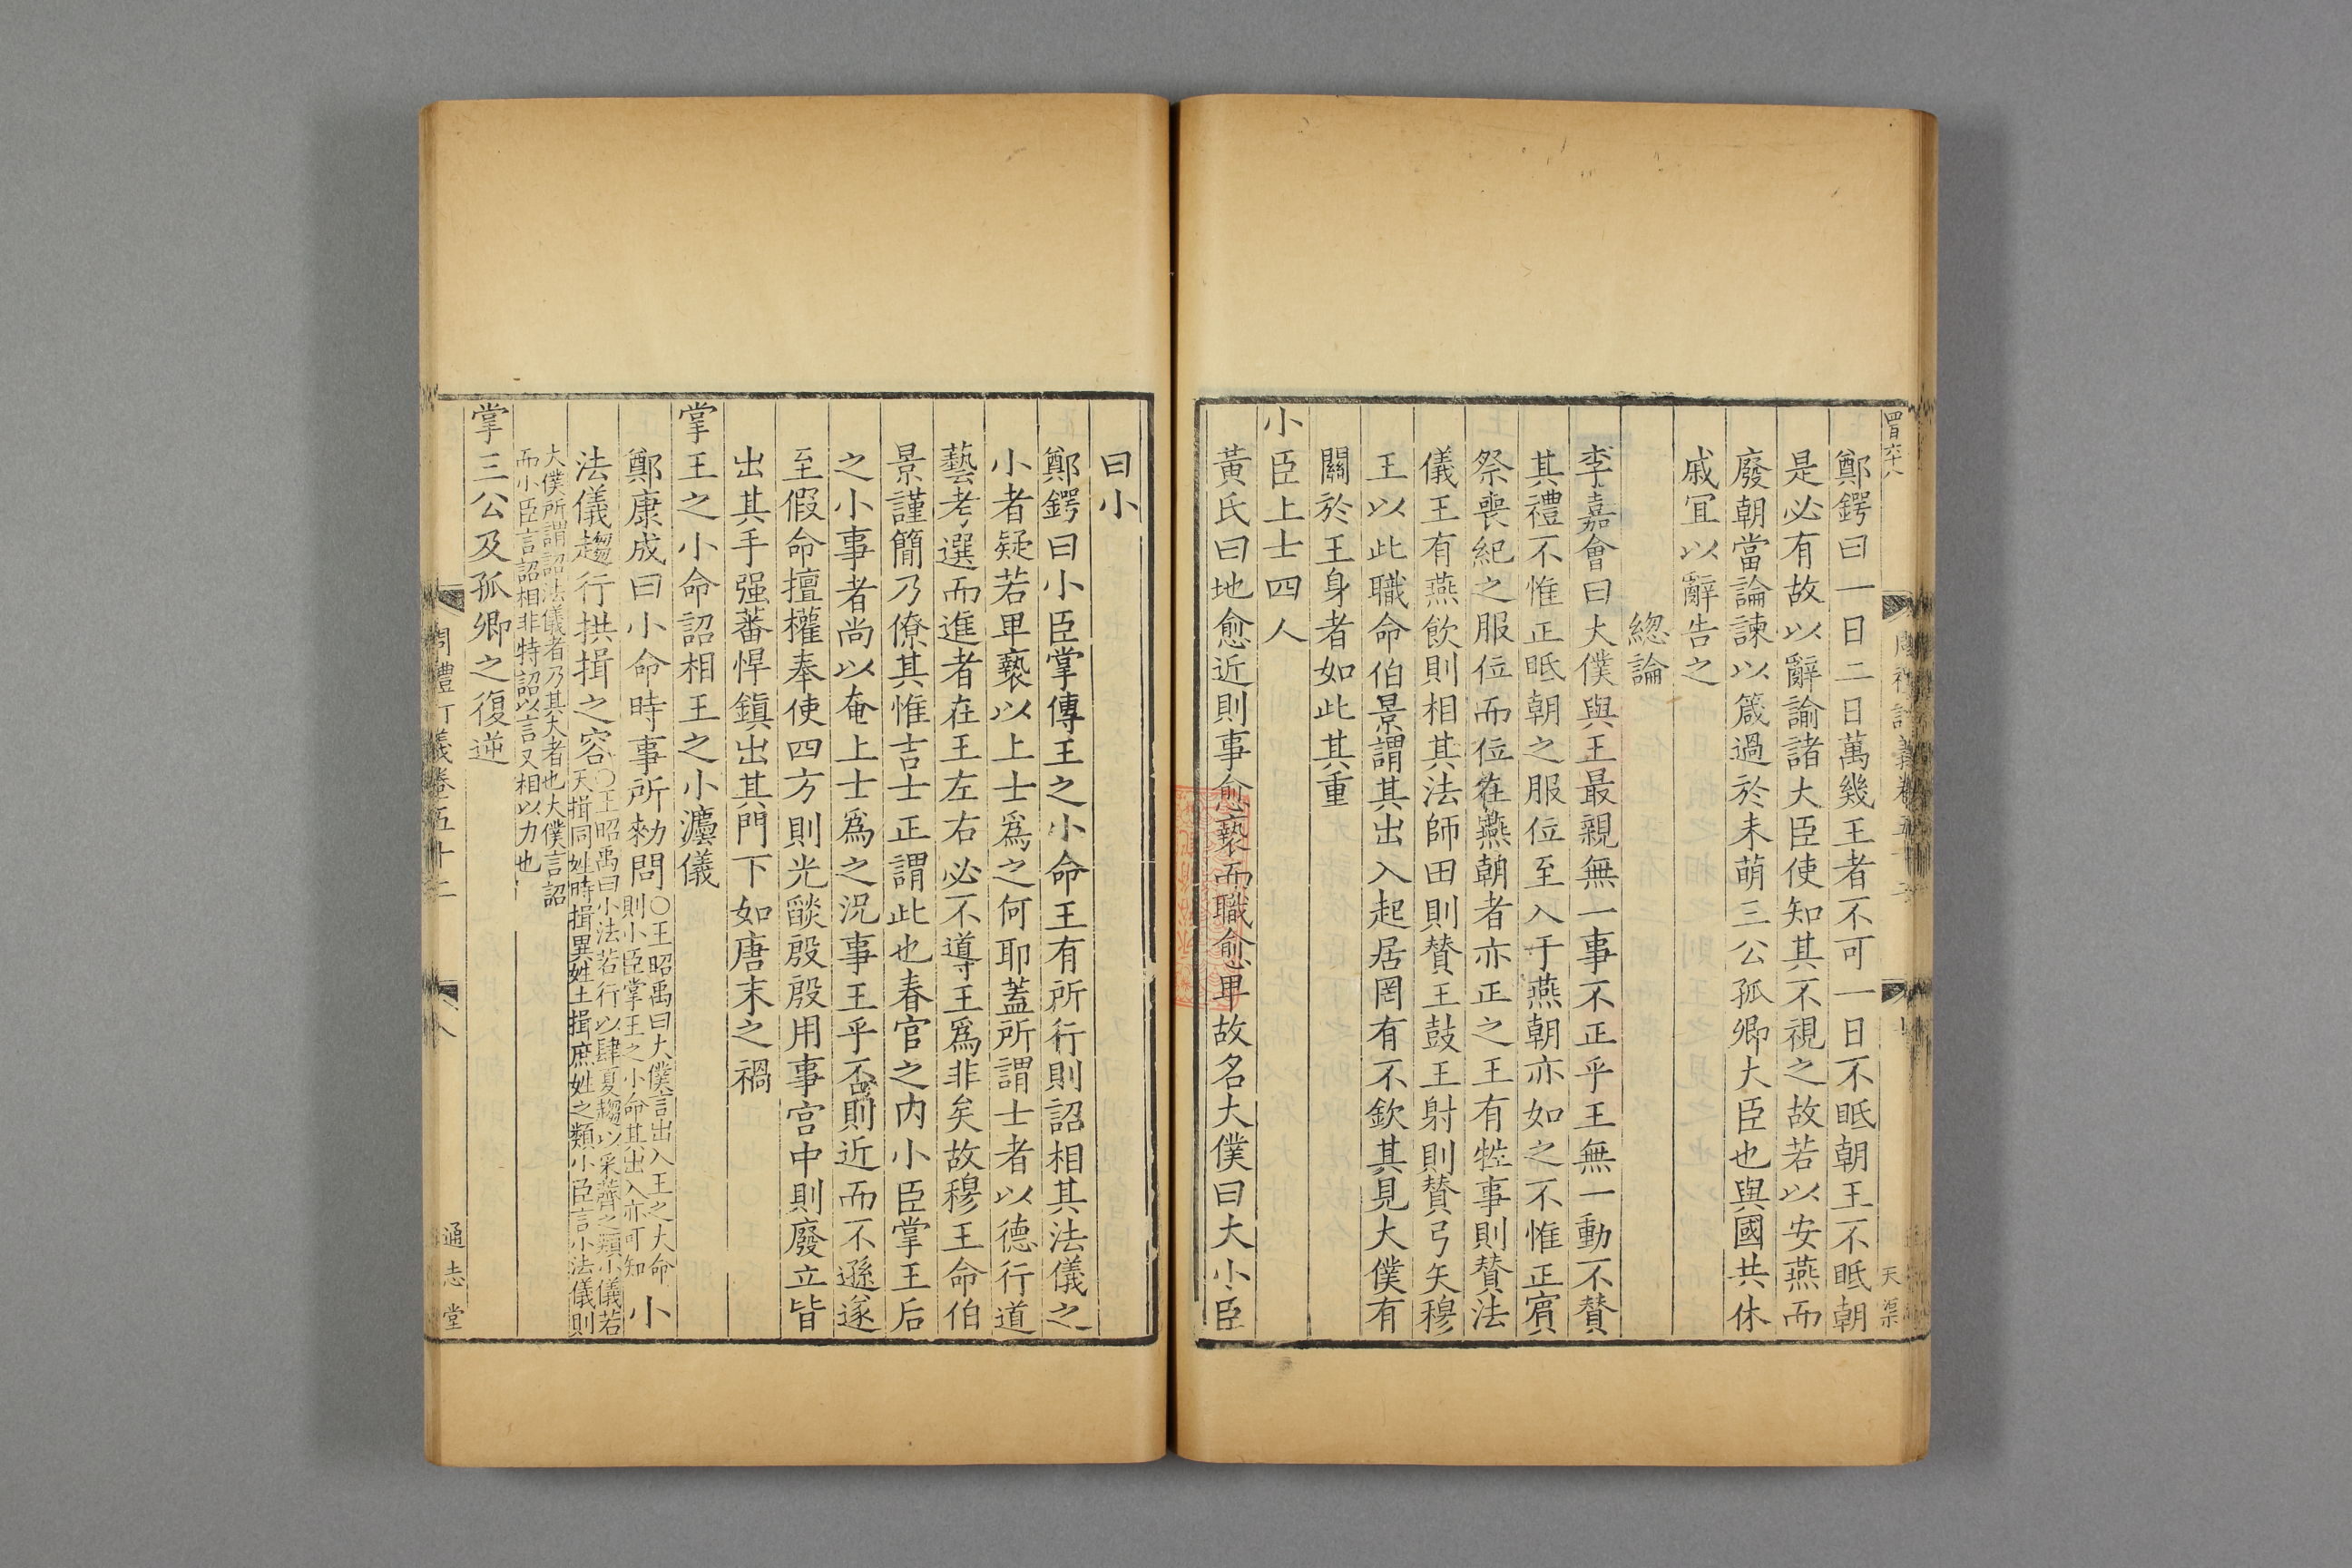 鄭鍔曰一日二日萬幾王者不可一日不眡朝王不眡朝
是必有故以辭諭諸大臣使知其不視之故若以安燕而
廢朝當論諫以箴過於未萌三公孤卿大臣也與國共休
戚冝以辭告之
緫論
李嘉會曰大僕與王最親無一事不正乎王無一動不賛
其禮不惟正眡朝之服位至入于燕朝亦如之不惟正賓
祭喪紀之服位而位在燕朝者亦正之王有牲事則賛法
儀王有燕飲則相其法師田則賛王鼓王射則賛弓矢穆
王以此職命伯景謂其出入起居罔有不欽其見大僕有
關於王身者如此其重
小臣上士四人
黃氏曰地愈近則事愈褻而職愈卑故名大僕曰大小臣
曰小
鄭鍔曰小臣掌傳王之小命王有所行則詔相其法儀之
小者疑若卑褻以上士爲之何耶蓋所謂士者以德行道
藝考選而進者在王左右必不導王爲非矣故穆王命伯
景謹簡乃僚其惟吉士正謂此也春官之内小臣掌王后
之小事者尚以奄上士爲之況事王乎否則近而不遜遂
至假命擅權奉使四方則光燄殷殷用事宫中則廢立皆
出其手强蕃悍鎭出其門下如唐末之禍
掌王之小命詔相王之小灋儀
鄭康成曰小命時事所勑問○王昭禹曰大僕言出入王之大命則小臣掌王之小命其出入亦可知小
法儀趨行拱揖之容○王昭禹曰小法若行以肆夏趨以采薺之類小儀若天揖同姓時揖異姓土揖庶姓之類小臣言小法儀則
大僕所謂詔法儀者乃其大者也大僕言詔
而小臣言詔相非特詔以言又相以力也
掌三公及孤卿之復逆
周禮訂義卷五十二
八
通志堂